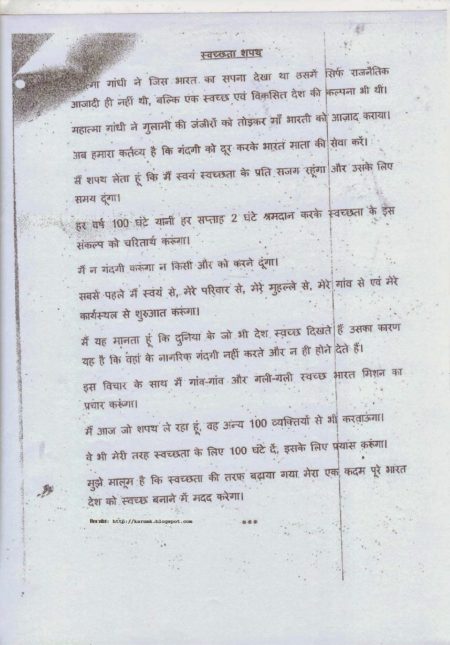 स्वच्छता शपथ
महात्मा गांधी ने जिस भारत का सपना देखा था उसमें सिर्फ राजनैतिक
आजादी ही नहीं थी, बल्कि एक स्वच्छ एवं विकसित देश की कल्पना भी थी।
महात्मा गांधी ने गुलामी की जंजीरों को तोड़कर माँ भारती को आज़ाद कराया।
अब हमारा कर्तव्य है कि गंदगी को दूर करके भारत माता की सेवा करें।
मैं शपथ लेता हूं कि मैं स्वयं स्वच्छता के प्रति सजग रहूंगा और उसके लिए
समय दूंगा।
हर वर्ष 100 घंटे यानी हर सप्ताह 2 घंटे श्रमदान करके स्वच्छता के इस
संकल्प को चरितार्थ करूंगा।
मैं न गंदगी करूंगा न किसी और को करने दूंगा।
सबसे पहले मैं स्वयं से, मेरे परिवार से, मेरे मुहल्ले से, मेरे गांव से एवं मेरे
कार्यस्थल से शुरुआत करूंगा।
मैं यह मानता हूं कि दुनिया के जो भी देश स्वच्छ दिखते हैं उसका कारण
यह है कि वहां के नागरिक गंदगी नहीं करते और न ही होने देते हैं।
इस विचार के साथ मैं गांव-गांव और गली-गली स्वच्छ भारत मिशन का
प्रचार करूंगा।
मैं आज जो शपथ ले रहा हूं, वह अन्य 100 व्यक्तियों से भी करवाऊंगा।
वे भी मेरी तरह स्वच्छता के लिए 100 घंटे दें, इसके लिए प्रयास करूंगा।
मुझे मालूम है कि स्वच्छता की तरफ बढ़ाया गया मेरा एक कदम पूरे भारत
देश को स्वच्छ बनाने में मदद करेगा।
***